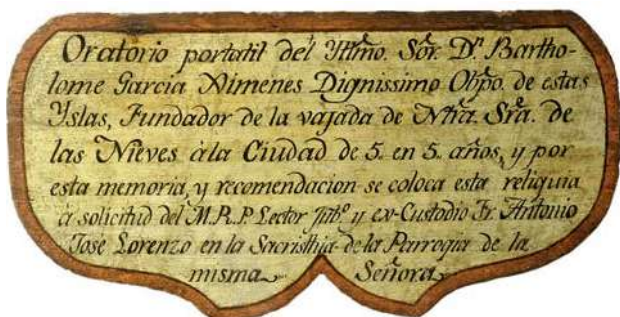 Oratorio portatil del Yttmo. Sõr. Dn. Bartho-
lome Garcia Ximenes Dignissimo Obpo. de estas
Yslas, Fundador de la vajada de Ntra. Sra. de
las Nieves à la Ciudad de 5. en 5. años, y por
esta memoria, y recomendacion se coloca esta reliquia
à solicitud del M.R.P. Lector Jubo. y ex-Custodio Fr. Antonio
Jose Lorenzo en la Sacristhia de la Parroqia de la
misma Señora